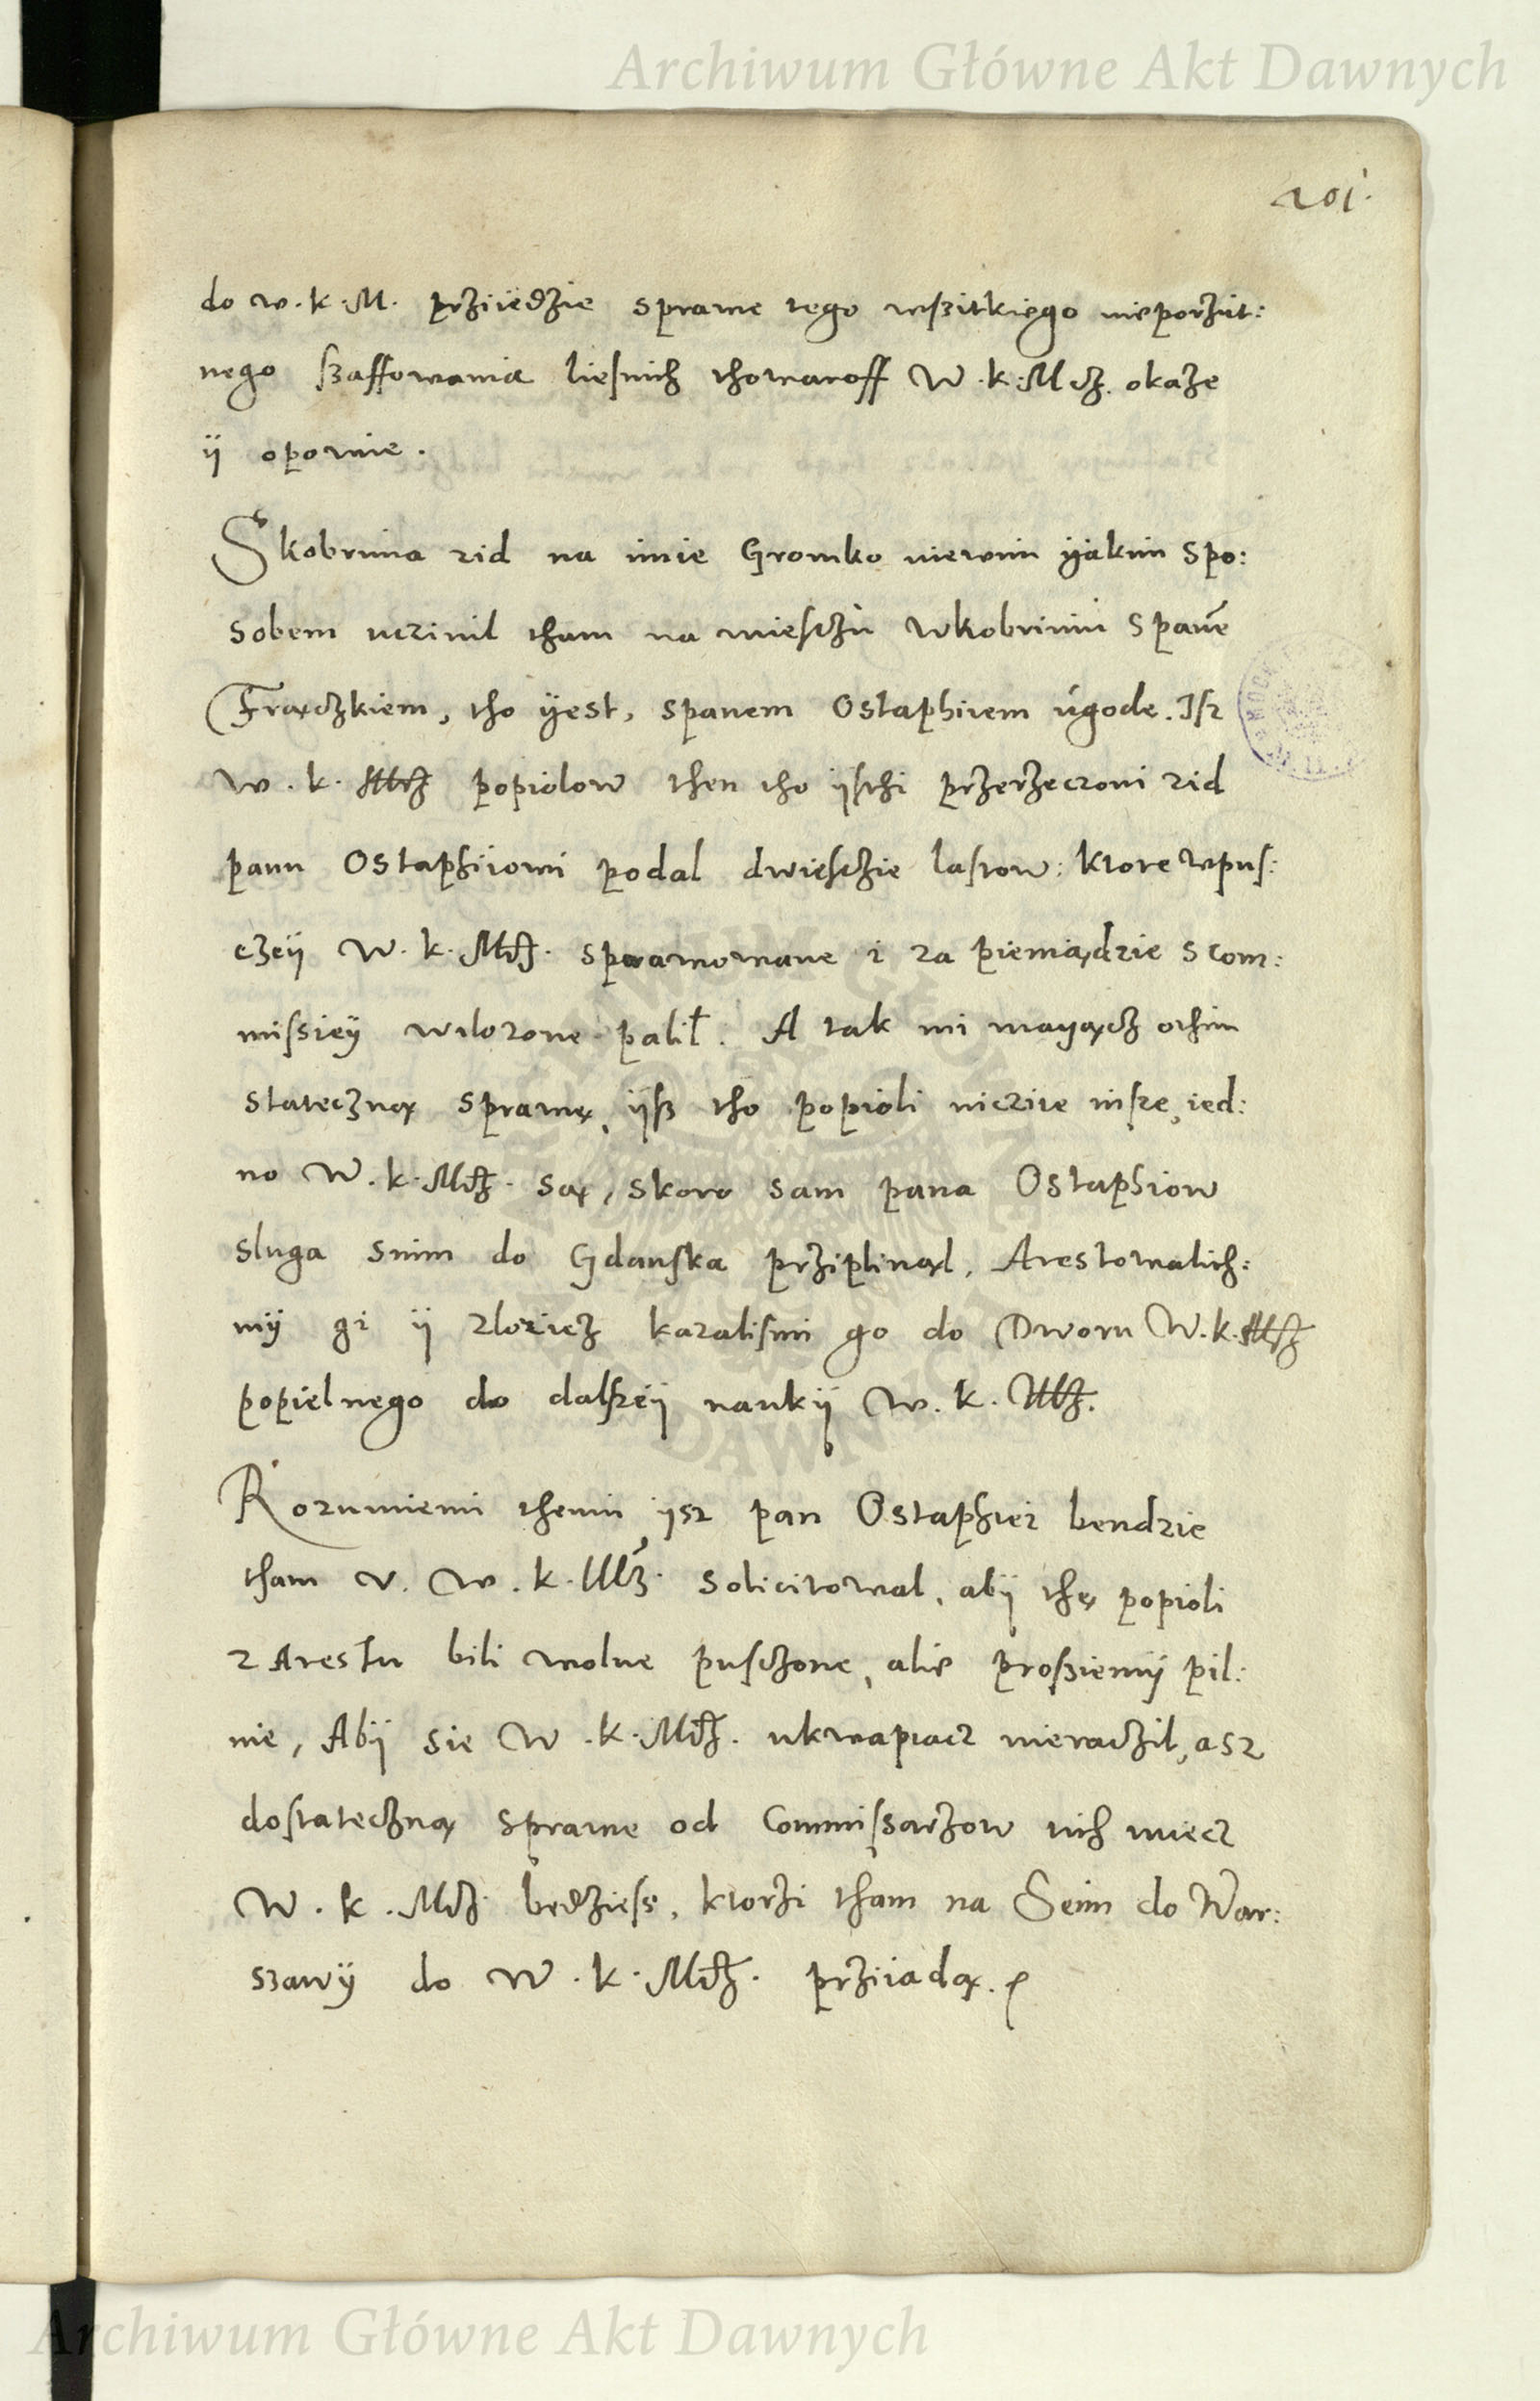 Archiwum Główne Akt Dawnych
201.
do w. k. M. prziiedzie sprawe tego wszitkiego nieporziut:
nego szaffowania liesnich thowaroff W. k. Mcz. okaze
ÿ opowie.
Skobrinia zid na imie Gromko niewim ÿakim spo:
sobem uczinil tham na miesczu wkobriniu spane
Frączkiem, tho ÿest, spanem Ostaphiem ugode. Isz
W. k. Mcz popiolow then tho ÿsthi przerzeczoni zid
panu Ostaphiiowi podal dwiesczie lastow: ktore wpus:
czeÿ W. k. Mcz. sprawowane i za pieniądzie scom:
missieÿ wilozone palił. A tak mi mayącz othim
stateczną sprawę, ÿsz tho popioli niczÿe insze, ied:
no W. k. Mcz. są, skoro sam pana Ostaphiow
sluga snim do Gdanska prziplinąl, Arestowalich:
mÿ gi ÿ zlozicz kazalismi go do Dworu W. k. Mcz
popielnego do dalszeÿ naukÿ W. k. Mcz.
Rozumiemi themu ÿsz pan Ostaphiei bendzie
tham v. W. k. Mcz. solicitowal, abÿ thę popioli
z Arestu bili wolne pusczone, alie prosziemÿ pil:
nie, Abÿ sie W. k. Mcz. ukwapiacz nieraczil, asz
dostateczną sprawe od Commissarzow nich miecz
W. k. Mcz. bedziesz, ktorzi tham na Seim do War:
szawÿ do W. k. Mcz. prziiadą.
Archiwum Główne Akt Dawnych